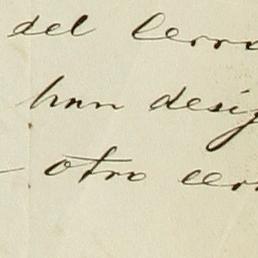 del cerro
han desig
otro cer